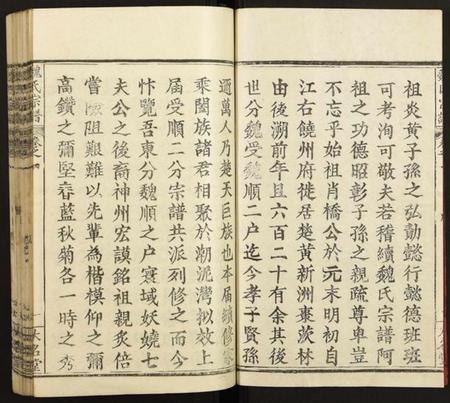 祖炎黃子孫之弘勳懿行懿德班班
可考洵可敬夫若稽續魏氏宗譜阿
祖之功德昭彰子孫之親疏尊卑豈
不忘乎始祖肖橋公於元末明初自
江右饒州府徙居楚黃新洲棗茨林
由後溯前年且六百二十有余其後
世分魏受魏順二户迄今孝子賢孫
邇萬人乃楚天巨族也本届續修
乘闔族諸君相聚於潮泥灣拟效上
届受順二分宗譜共派列修之而今
忭覽吾東分魏順之户寰域妖嬈七
夫公之後裔神州宏謨銘祖親炙倍
嘗險阻艱難以先輩為楷模仰之彌
高鑽之彌堅春蘭秋菊各一時之秀
魏氏宗譜